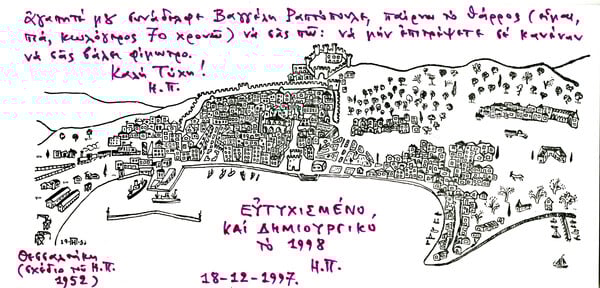 ἀγαπητέ μου συνάδελφε Βαγγέλη Ραπτόπουλε, παίρνω τὸ θάρρος (εἶμαι,
πιά, κωλόγερος 70 χρονῶ) νὰ σᾶς πῶ: νὰ μὴν ἐπιτρέψετε σὲ κανέναν
νὰ σᾶς βάλει φίμωτρο.
Καλὴ Τύχη!
Η.Π.
ΕὐΤΥΧΙΣΜΕΝΟ,
ΚΑΙ ΔΗΜΙΟΥΡΓΙΚΟ
τὸ 1998
Η.Π.
18-12-1997.
Θεσσαλονίκη
(σχέδιο τοῦ Η.Π.
1952)